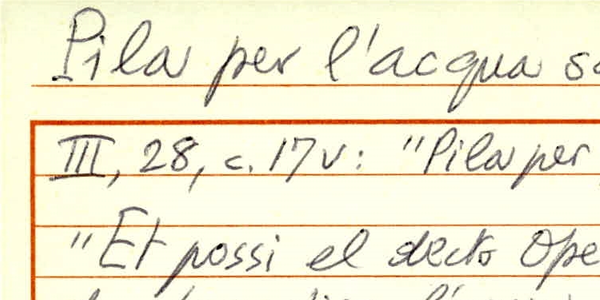 Pila per l'acqua
III, 28, c. 17v: "Pila per
"Et possi el decto Ope